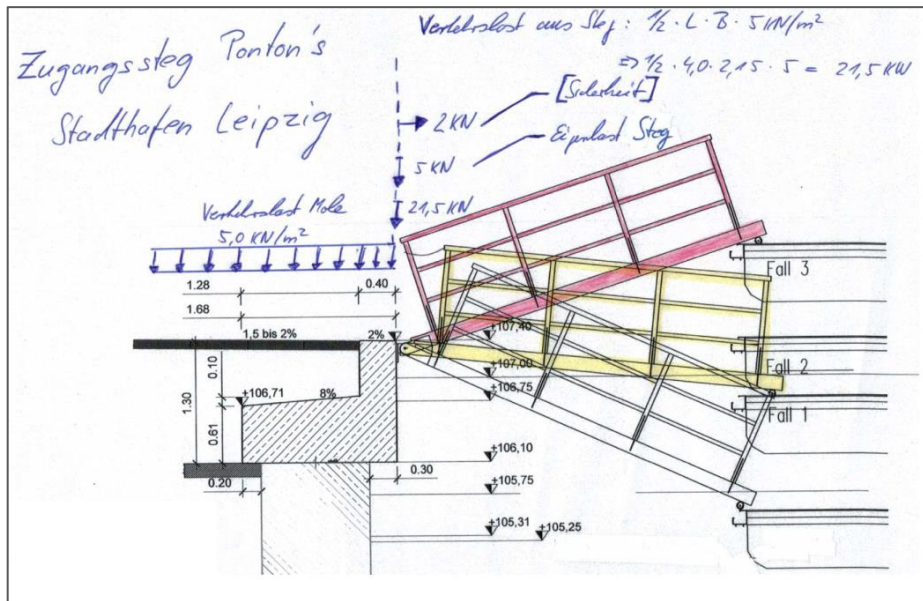 Zugangssteg Ponton's
Stadthafen Leipzig
Verkehrslast aus Steg: 1/2 · L · B · 5 KN/m²
⇒ 1/2 · 4,0 · 2,15 · 5 = 21,5 KN
[Sicherheit]
2 KN
Eigenlast Steg
5 KN
21,5 KN
Verkehrslast Mole
5,0 KN/m²
1.28
0.40
1.68
1,5 bis 2%
2%
+107,40
+107,00
+106,75
+106,71
8%
0.10
1.30
0.61
+106,10
0.30
0.20
+105,75
+105,31
+105,25
Fall 3
Fall 2
Fall 1